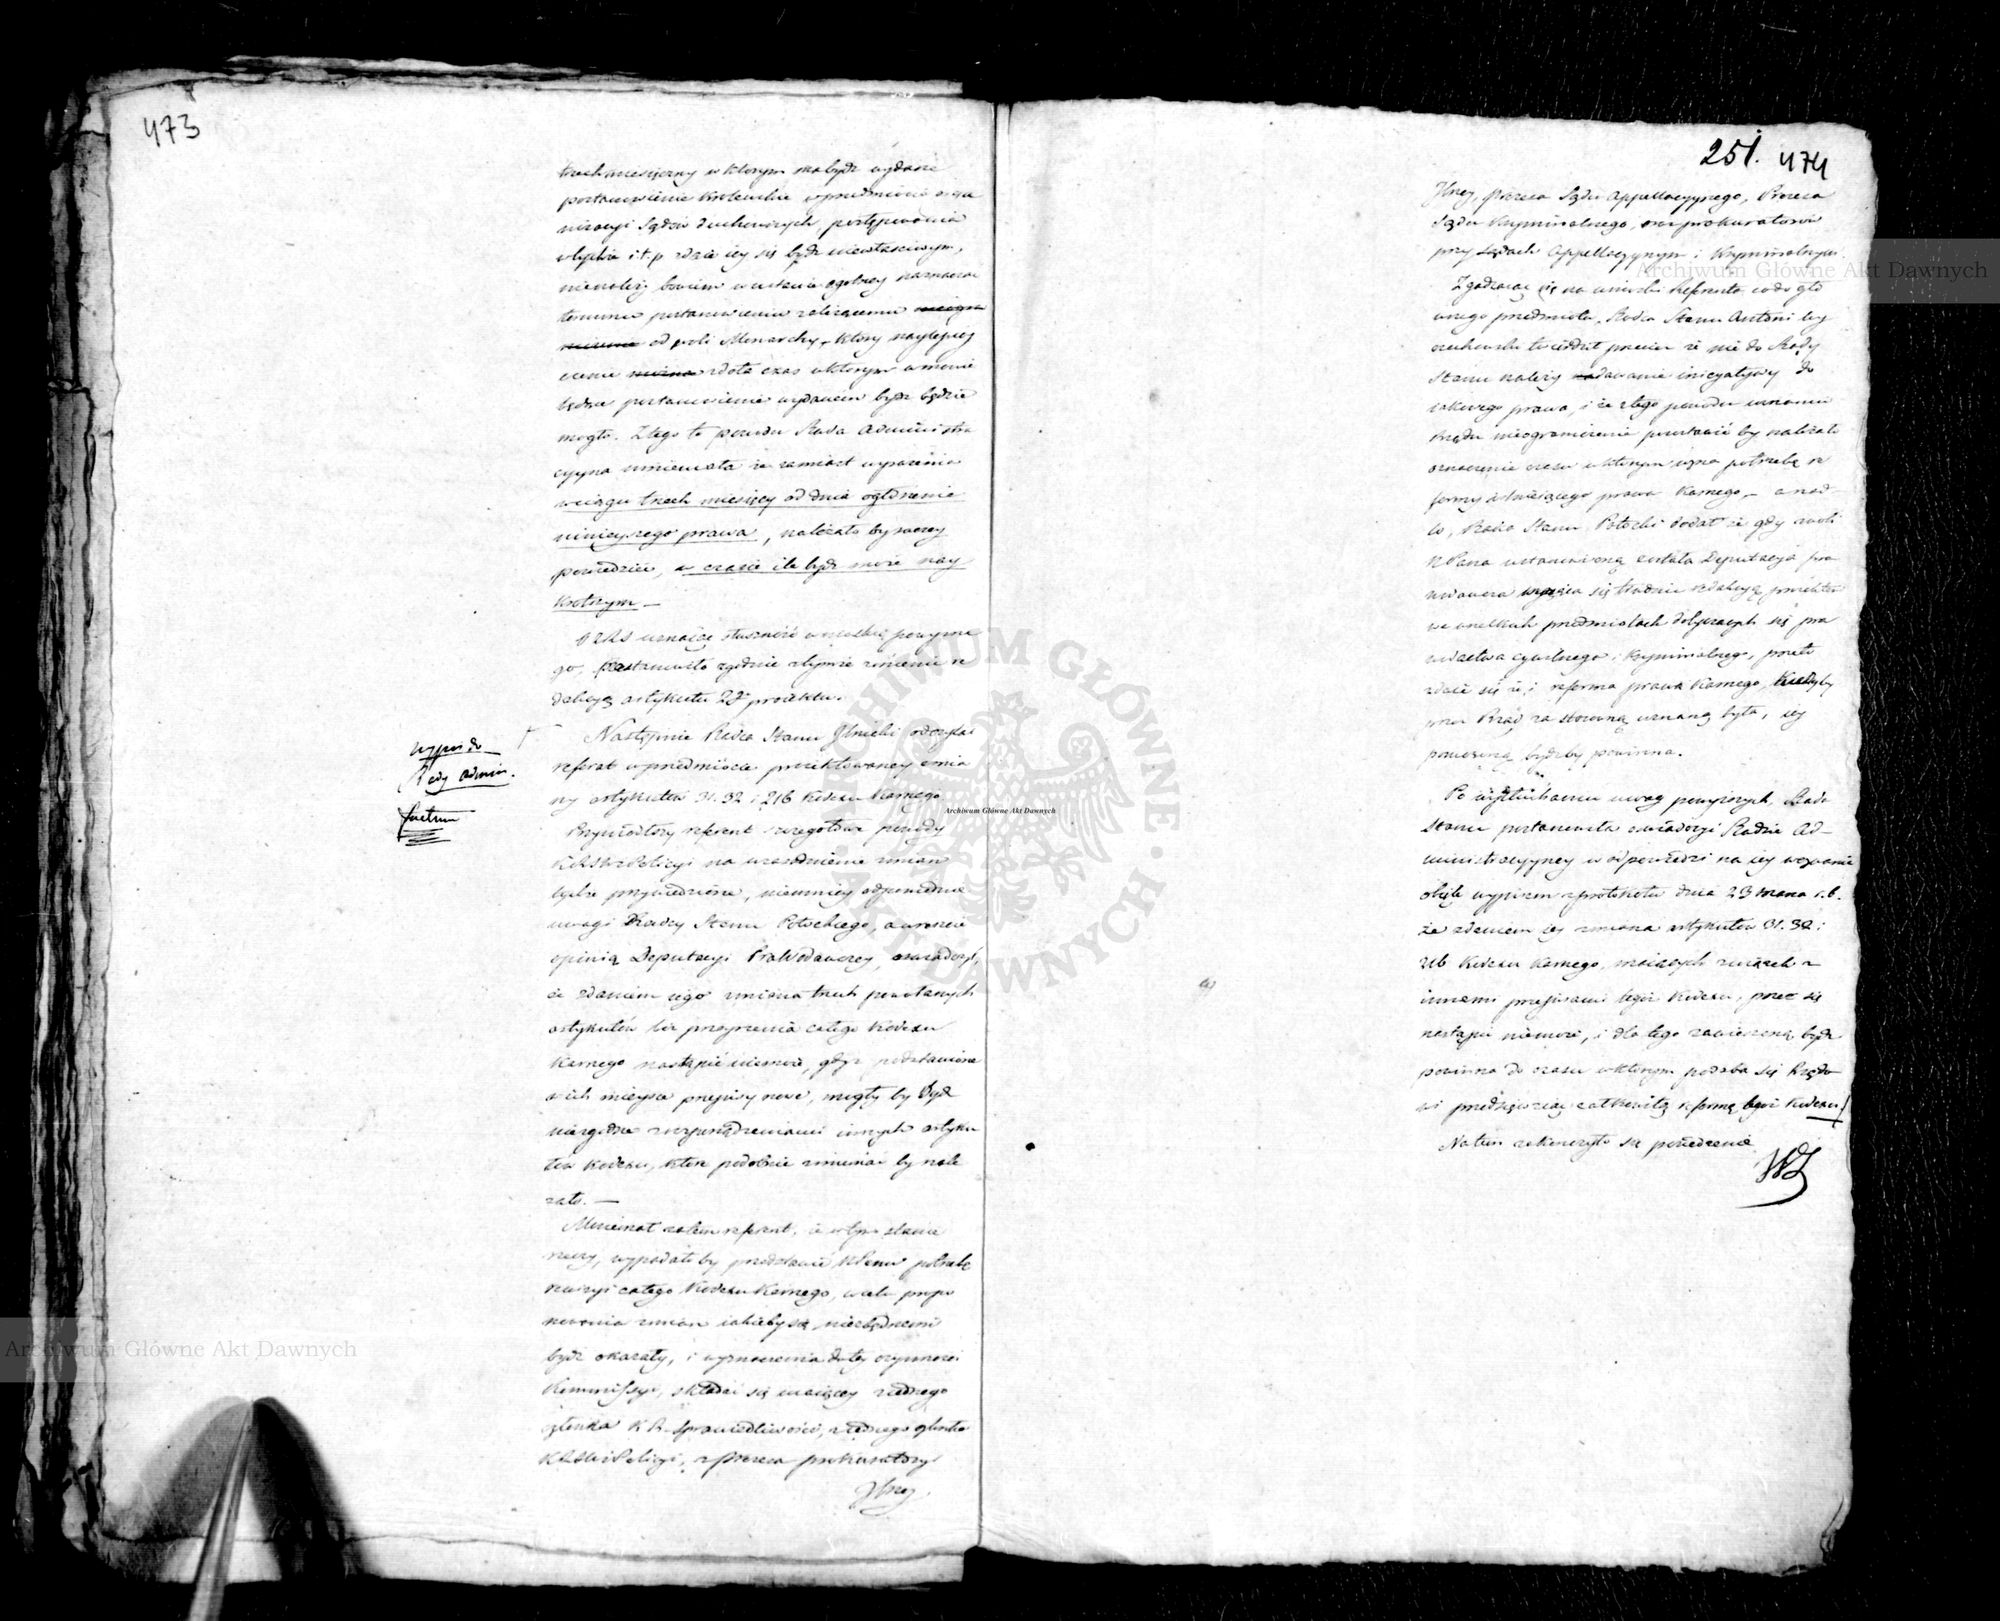 473
trzechmiesięczny w którym ma bydź wydane
postanowienie Królewskie w przedmiocie orga
nizacyi Sądów duchownych postępowania
w tychże i t. p. zdaie iey się bydź niewłaściwym,
nienależy bowiem w ustawie ogólney naznaczać
terminu postanowieniu zależącemu
od woli Monarchy, który naylepiey
ocenić zdoła czas w którym w mowie
będące postanowienie wydanem bydź będzie
mogło. Z tego to powodu Rada Administra
cyyna mniemała że zamiast wyrażenia
w ciągu trzech miesięcy od dnia ogłoszenia
ninieyszego prawa, należało by raczey
powiedzieć, w czasie ile bydź może nay
krótszym —
uznaiąc słuszność wniosku powyższe
go, postanowiło zgodnie z tymże zmienić re
dakcyą artykułu projektu.
Następnie Radca Stanu odczytał
referat w przedmiocie projektowaney zmia
ny artykułów 31. 32 i 216 Kodexu Karnego
wypis do
Rady Admin.
factum
Przywiodłszy referent szczegółowe powody
KRSWiPolicyi na uzasadnienie zmian
tychże przywiedzione, niemniey odpowiednie
uwagi Radcy Stanu Potockiego, a wreszcie
opinią Deputacyi Prawodawczey, oświadczył,
iż zdaniem iego zmiana trzech powołanych
artykułów bez przeyrzenia całego Kodexu
Karnego nastąpić niemoże, gdyż podstawione
w ich mieysce przepisy nowe, mogły by bydź
niezgodne z rozporządzeniami innych artyku
łów Kodexu, które podobnie zmieniać by nale
żało. —
Mniemał zatem referent, iż w tym stanie
rzeczy, wypadało by przedstawić potrzebę
rewizyi całego Kodexu Karnego, w celu propo
nowania zmian iakieby się niezbędnemi
bydź okazały, i wyznaczenia do tey czynności
Kommissyi, składać się maiącey z iednego
członka K R Sprawiedliwości, z iednego członka
KRSWiPolicyi, z Prezesa prokuratoryi
251. 474
Prezesa Sądu Appellacyynego, Prezesa
Sądu Kryminalnego, oraz prokuratorów
przy Sądach Appellacyynym i Kryminalnym.
Zgadzaiąc się na wnioski Referenta co do głó
wnego przedmiotu, Radca Stanu Antoni Wy
czechowski twierdził przecież że nie do Rady
Stanu należy dawanie inicyatywy do
takowego prawa, i że z tego powodu uznaniu
Rządu nieograniczenie zostawić by należało
oznaczenie czasu w którym uzna potrzebę re
formy istnieiącego prawa Karnego, — a nad
to, Radca Stanu Potocki dodał że gdy z woli
N Pana ustanowioną została Deputacya pra
wodawcza która się trudni redakcyą projektów
we wszelkich przedmiotach dotyczących się pra
wodawstwa cywilnego i kryminalnego, przeto
zdaie się że i reforma prawa Karnego, kiedyby
przez Rząd za stosowną uznaną była, iey
poruczoną bydźby powinna.
Po wysłuchaniu uwag powyższych, Rada
Stanu postanowiła oświadczyć Radzie Ad-
ministracyyney w odpowiedzi na iey wezwanie
objęte wypisem z protokółu dnia 23 marca r. b.
że zdaniem iey zmiana artykułów 31. 32 i
216 Kodexu Karnego, maiących związek z
innemi przepisami tegoż Kodexu, przez się
nastąpić niemoże, i dla tego zawieszoną bydź
powinna do czasu w którym podoba się Rządo
wi przedsięwziąć całkowitą reformę tegoż Kodexu.
Na tem zakończyło się posiedzenie
Archiwum Główne Akt Dawnych
Archiwum Główne Akt Dawnych
Archiwum Główne Akt Dawnych
ARCHIWUM GŁÓWNE AKT DAWNYCH